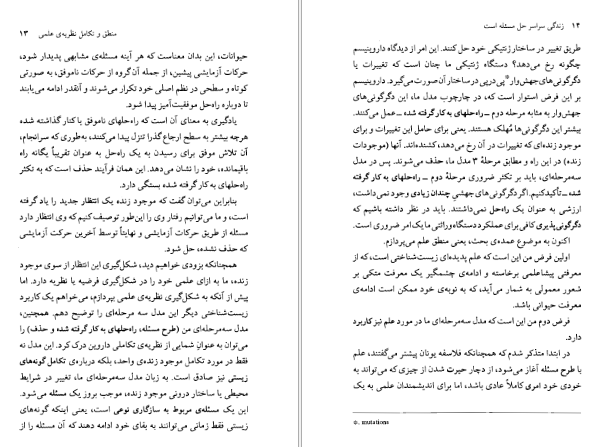 منطق و تکامل نظریه‌ی علمی ۱۳
حیوانات، این بدان معناست که هر آینه مسئله‌ی مشابهی پدیدار شود،
حرکات آزمایشی پیشین، از جمله آن گروه از حرکات ناموفق، به صورتی
کوتاه و سطحی در نظم اصلی خود تکرار می‌شوند و آنقدر ادامه می‌یابند
تا دوباره راه‌حل موفقیت‌آمیز پیدا شود.
یادگیری به معنای آن است که راه‌حلهای ناموفق یا کنار گذاشته شده
هرچه بیشتر به سطح ارجاع گذرا تنزل پیدا می‌کنند، به‌طوری که سرانجام،
آن تلاش موفق برای رسیدن به یک راه‌حل به عنوان تقریباً یگانه راه
باقیمانده، خود را نشان می‌دهد. این همان فرآیند حذف است که به تکثر
راه‌حلهای به کار گرفته شده بستگی دارد.
بنابراین می‌توان گفت که موجود زنده یک انتظار جدید را یاد گرفته
است، و ما می‌توانیم رفتار وی را این‌طور توصیف کنیم که وی انتظار دارد
مسئله از طریق حرکات آزمایشی و نهایتاً توسط آخرین حرکت آزمایشی
که حذف نشده، حل شود.
همچنانکه بزودی خواهیم دید، شکل‌گیری این انتظار از سوی موجود
زنده، ما به ازای علمی خود را در شکل‌گیری فرضیه یا نظریه دارد. اما
پیش از آنکه به شکل‌گیری نظریه‌ی علمی بپردازم، می‌خواهم یک کاربرد
زیست‌شناختی دیگر این مدل سه مرحله‌ای را توضیح دهم. همچنین،
مدل سه‌مرحله‌ای من (طرح مسئله، راه‌حلهای به کار گرفته شده و حذف) را
می‌توان به عنوان شمایی از نظریه‌ی تکاملی داروین درک کرد. این مدل نه
فقط در مورد تکامل موجود زنده‌ی واحد، بلکه درباره‌ی تکامل گونه‌های
زیستی نیز صادق است. به زبان مدل سه‌مرحله‌ای ما، تغییر در شرایط
محیطی یا ساختار درونی موجود زنده، موجب بروز یک مسئله می‌شود.
این یک مسئله‌ی مربوط به سازگاری نوعی است، یعنی اینکه گونه‌های
زیستی فقط زمانی می‌توانند به بقای خود ادامه دهند که آن مسئله را از
۱۴ زندگی سراسر حل مسئله است
طریق تغییر در ساختار ژنتیکی خود حل کنند. این امر از دیدگاه داروینیسم
چگونه رخ می‌دهد؟ دستگاه ژنتیکی ما چنان است که تغییرات یا
دگرگونی‌های جهش‌وار* پی‌درپی در ساختار آن صورت می‌گیرد. داروینیسم
بر این فرض استوار است که، در چارچوب مدل ما، این دگرگونی‌های
جهش‌وار به مثابه مرحله دوم ـ راه‌حلهای به کار گرفته شده ـ عمل می‌کنند.
بیشتر این دگرگونی‌ها مُهلک هستند. یعنی برای حامل این تغییرات و برای
موجود زنده‌ای که تغییرات در آن رخ می‌دهد، کشنده‌اند. آنها (موجودات
زنده) در این راه و مطابق مرحلهٔ ۳ مدل ما، حذف می‌شوند. پس در مدل
سه‌مرحله‌ای، باید بر تکثر ضروری مرحلهٔ دوم ـ راه‌حلهای به کار گرفته
شده ـ تأکید کنیم. اگر دگرگونی‌های جهشیِ چندان زیادی وجود نمی‌داشت،
ارزشی به عنوان یک راه‌حل نمی‌داشتند. باید در نظر داشته باشیم که
دگرگونی‌پذیری کافی برای عملکرد دستگاه وراثتی ما یک امر ضروری است.
اکنون به موضوع عمده‌ی بحث، یعنی منطق علم می‌پردازم.
اولین فرض من این است که علم پدیده‌ای زیست‌شناختی است، که از
معرفتی پیشاعلمی برخاسته و ادامه‌ی چشمگیر یک معرفت متکی بر
شعور معمولی به شمار می‌آید، که به نوبه‌ی خود ممکن است ادامه‌ی
معرفت حیوانی باشد.
فرض دوم من این است که مدل سه‌مرحله‌ای ما در مورد علم نیز کاربرد
دارد.
در ابتدا متذکر شدم که همچنانکه فلاسفه یونان پیشتر می‌گفتند، علم
با طرح مسئله آغاز می‌شود، از دچار حیرت شدن از چیزی که می‌تواند به
خودی خود امری کاملاً عادی باشد، اما برای اندیشمندان علمی به یک
*. mutations